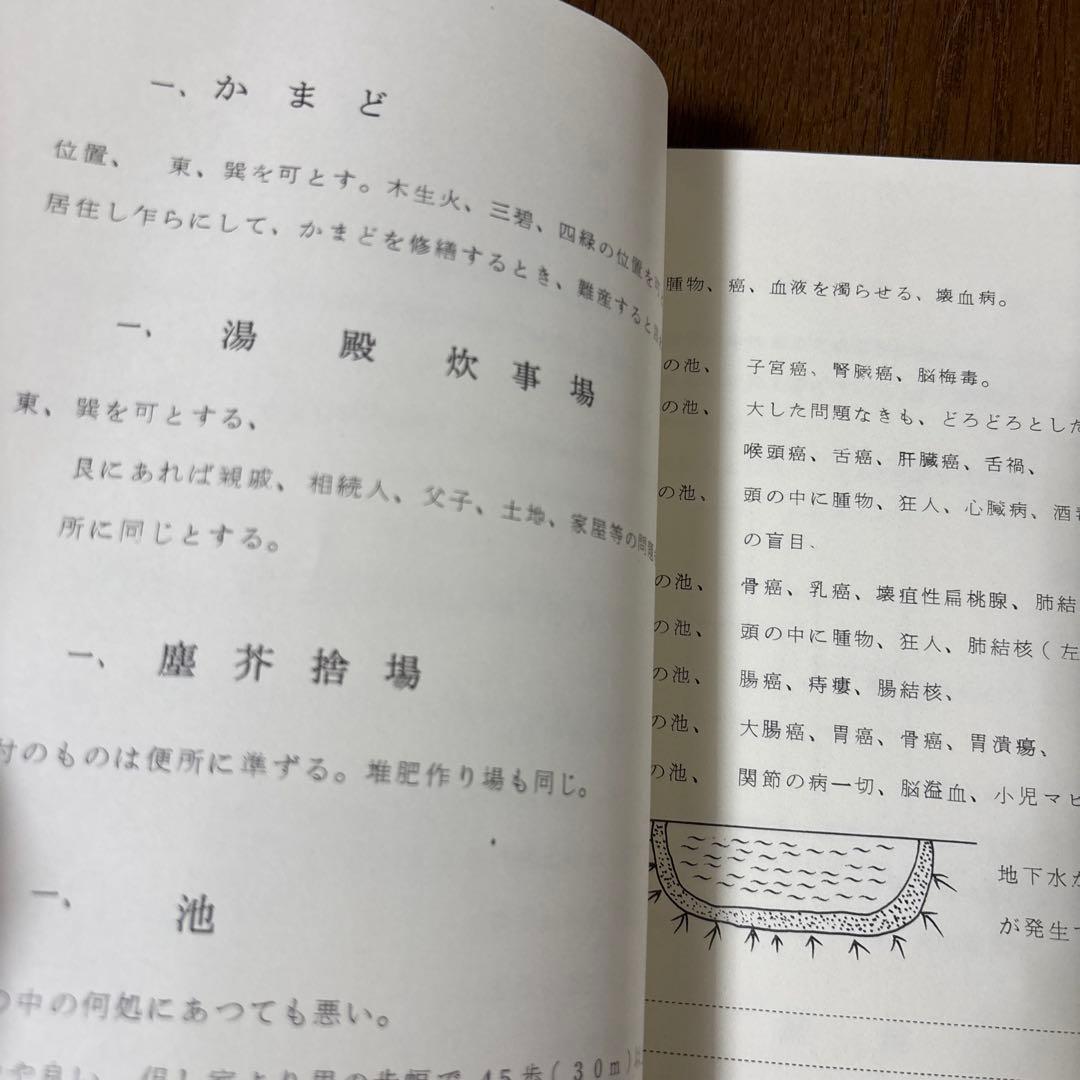 一、かまど
位置、 東、巽を可とす。木生火、三碧、四緑の位置を
居住し乍らにして、かまどを修繕するとき、難産すると
一、湯殿 炊事場
東、巽を可とする、
艮にあれば親戚、相続人、父子、土地、家屋等の問題
所に同じとする。
一、塵芥捨場
付のものは便所に準ずる。堆肥作り場も同じ。
一、池
の中の何処にあつても悪い。
や良い、但し家より男の歩幅で45歩(30m)
腫物、癌、血液を濁らせる、壊血病。
の池、 子宮癌、腎臓癌、脳梅毒。
の池、 大した問題なきも、どろどろとした
喉頭癌、舌癌、肝臓癌、舌禍、
の池、 頭の中に腫物、狂人、心臓病、酒
の盲目、
の池、 骨癌、乳癌、壊疽性扁桃腺、肺結
の池、 頭の中に腫物、狂人、肺結核(左
の池、 腸癌、痔瘻、腸結核、
の池、 大腸癌、胃癌、骨癌、胃潰瘍、
の池、 関節の病一切、脳溢血、小児マヒ
地下水が
が発生